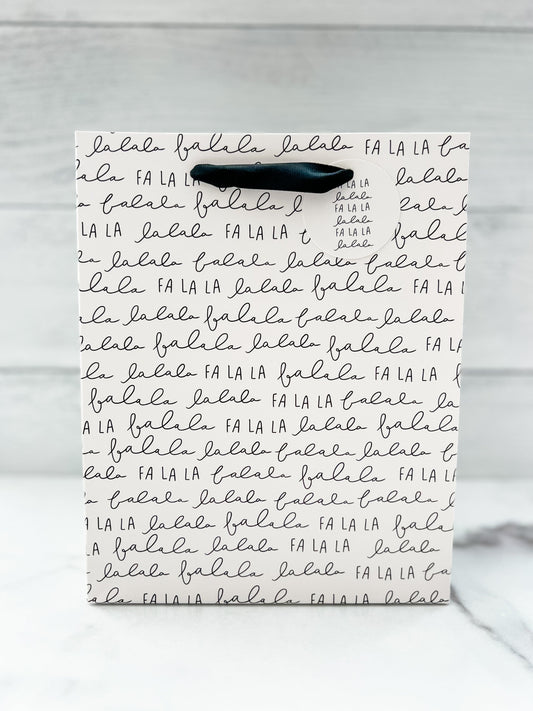 lalala falala lalala FA LA LA fa
ala FA LA L
lalala falala falala l
FA LA LA lalala FA LA LA falala
lalala falala lalala falala
FA LA LA lalala falala FA LA LA
lalala falala falala lalala
falala lalala falala FA L
la lalala FA LA LA falala FA LA LA
falala lalala FA LA LA falala la
LA LA falala FA LA LA lalala FA LA LA
falala lalala falala falala
lalala FA LA LA falala falala FA LA
falala lalala falala lalala
A LA LA lalala falala FA LA LA falala
LA lalala falala FA LA LA lalala
lalala falala lalala FA LA LA fa
FA LA LA
LA LA
lalala
FA LA LA
lalala
FA LA LA
lalala